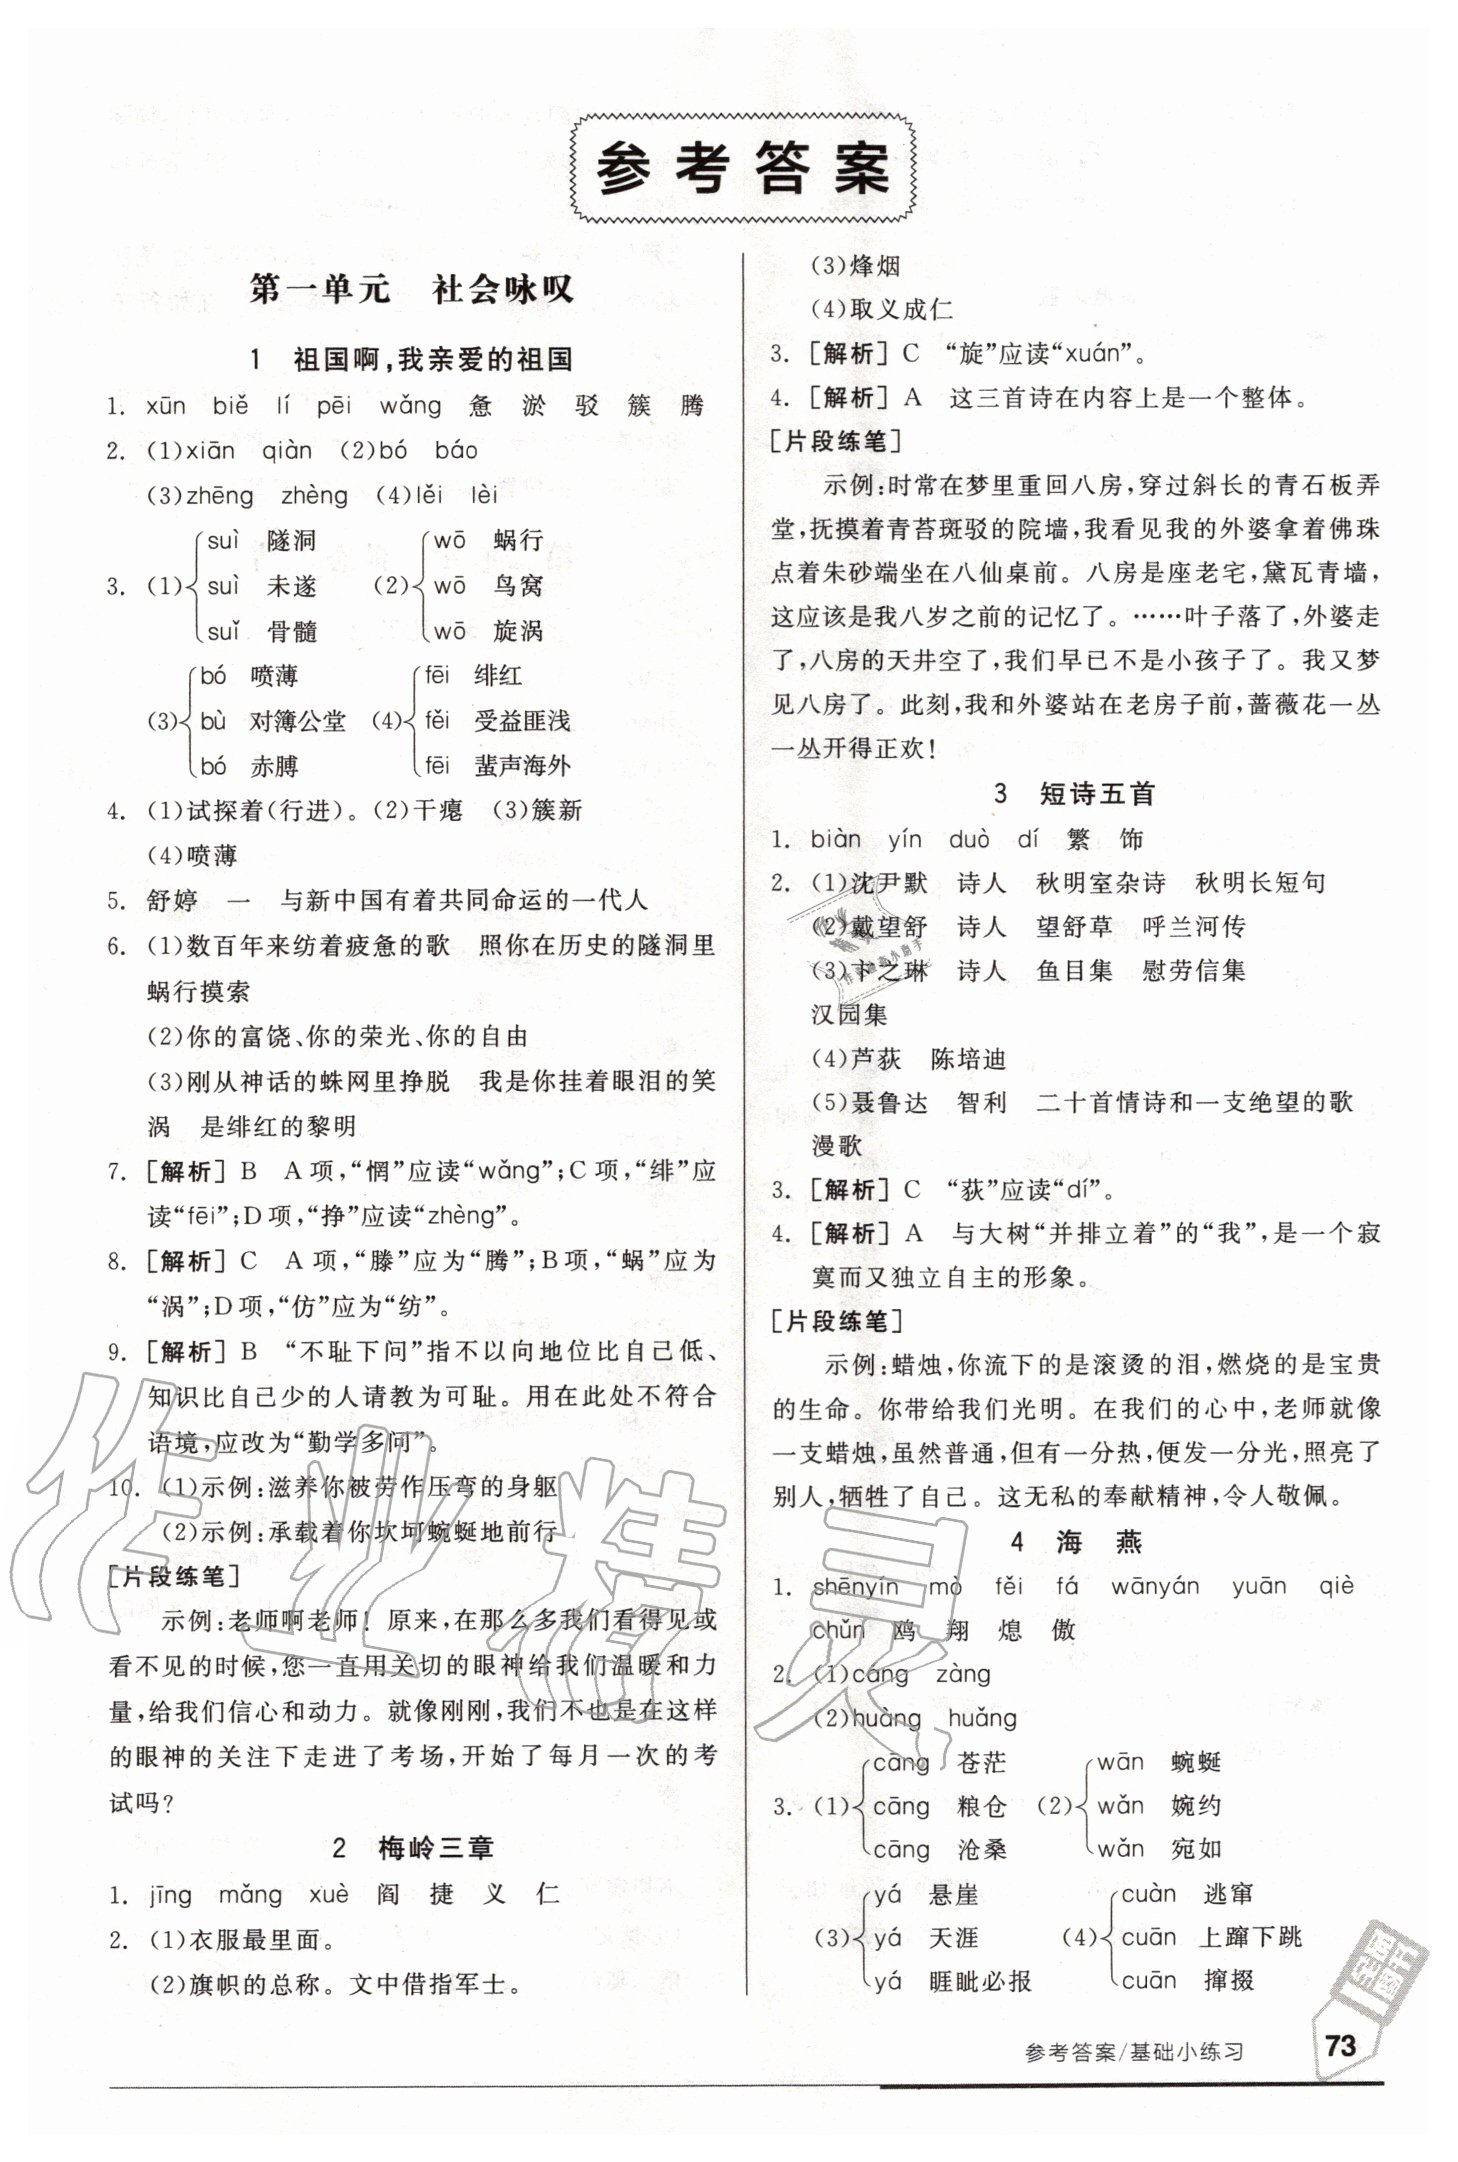 参考答案
第一单元　社会咏叹
1　祖国啊,我亲爱的祖国
1. xūn　biě　lí　pēi　wǎng　惫　淤　驳　簇　腾
2. (1)xiān　qiàn　(2)bó　báo
(3)zhēng　zhèng　(4)lěi　lèi
suì　隧洞　wō　蜗行
3. (1) suì　未遂　(2) wō　鸟窝
suǐ　骨髓　wō　旋涡
bó　喷薄　fēi　绯红
(3) bù　对簿公堂　(4) fěi　受益匪浅
bó　赤膊　fēi　蜚声海外
4. (1)试探着(行进)。(2)干瘪　(3)簇新
(4)喷薄
5. 舒婷　一　与新中国有着共同命运的一代人
6. (1)数百年来纺着疲惫的歌　照你在历史的隧洞里
蜗行摸索
(2)你的富饶、你的荣光、你的自由
(3)刚从神话的蛛网里挣脱　我是你挂着眼泪的笑
涡　是绯红的黎明
7. [解析] B　A项,“惘”应读“wǎng”;C项,“绯”应
读“fēi”;D项,“挣”应读“zhèng”。
8. [解析] C　A项,“滕”应为“腾”;B项,“蜗”应为
“涡”;D项,“仿”应为“纺”。
9. [解析] B　“不耻下问”指不以向地位比自己低、
知识比自己少的人请教为可耻。用在此处不符合
语境,应改为“勤学多问”。
10. (1)示例:滋养你被劳作压弯的身躯
(2)示例:承载着你坎坷蜿蜒地前行
[片段练笔]
示例:老师啊老师！原来,在那么多我们看得见或
看不见的时候,您一直用关切的眼神给我们温暖和力
量,给我们信心和动力。就像刚刚,我们不也是在这样
的眼神的关注下走进了考场,开始了每月一次的考
试吗?
2　梅岭三章
1. jīng　mǎng　xuè　阎　捷　义　仁
2. (1)衣服最里面。
(2)旗帜的总称。文中借指军士。
(3)烽烟
(4)取义成仁
3. [解析] C　“旋”应读“xuán”。
4. [解析] A　这三首诗在内容上是一个整体。
[片段练笔]
示例:时常在梦里重回八房,穿过斜长的青石板弄
堂,抚摸着青苔斑驳的院墙,我看见我的外婆拿着佛珠
点着朱砂端坐在八仙桌前。八房是座老宅,黛瓦青墙,
这应该是我八岁之前的记忆了。……叶子落了,外婆走
了,八房的天井空了,我们早已不是小孩子了。我又梦
见八房了。此刻,我和外婆站在老房子前,蔷薇花一丛
一丛开得正欢！
3　短诗五首
1. biàn　yín　duò　dí　繁　饰
2. (1)沈尹默　诗人　秋明室杂诗　秋明长短句
(2)戴望舒　诗人　望舒草　呼兰河传
(3)卞之琳　诗人　鱼目集　慰劳信集
汉园集
(4)芦荻　陈培迪
(5)聂鲁达　智利　二十首情诗和一支绝望的歌
漫歌
3. [解析] C　“荻”应读“dí”。
4. [解析] A　与大树“并排立着”的“我”,是一个寂
寞而又独立自主的形象。
[片段练笔]
示例:蜡烛,你流下的是滚烫的泪,燃烧的是宝贵
的生命。你带给我们光明。在我们的心中,老师就像
一支蜡烛,虽然普通,但有一分热,便发一分光,照亮了
别人,牺牲了自己。这无私的奉献精神,令人敬佩。
4　海　燕
1. shēnyín　mò　fěi　fá　wānyán　yuān　qiè
chǔn　鸥　翔　熄　傲
2. (1)cáng　zàng
(2)huàng　huǎng
cāng　苍茫　wān　蜿蜒
3. (1) cāng　粮仓　(2) wǎn　婉约
cāng　沧桑　wǎn　宛如
yá　悬崖　cuàn　逃窜
(3) yá　天涯　(4) cuān　上蹿下跳
yá　睚眦必报　cuān　撺掇
参考答案/基础小练习
73
作业精灵